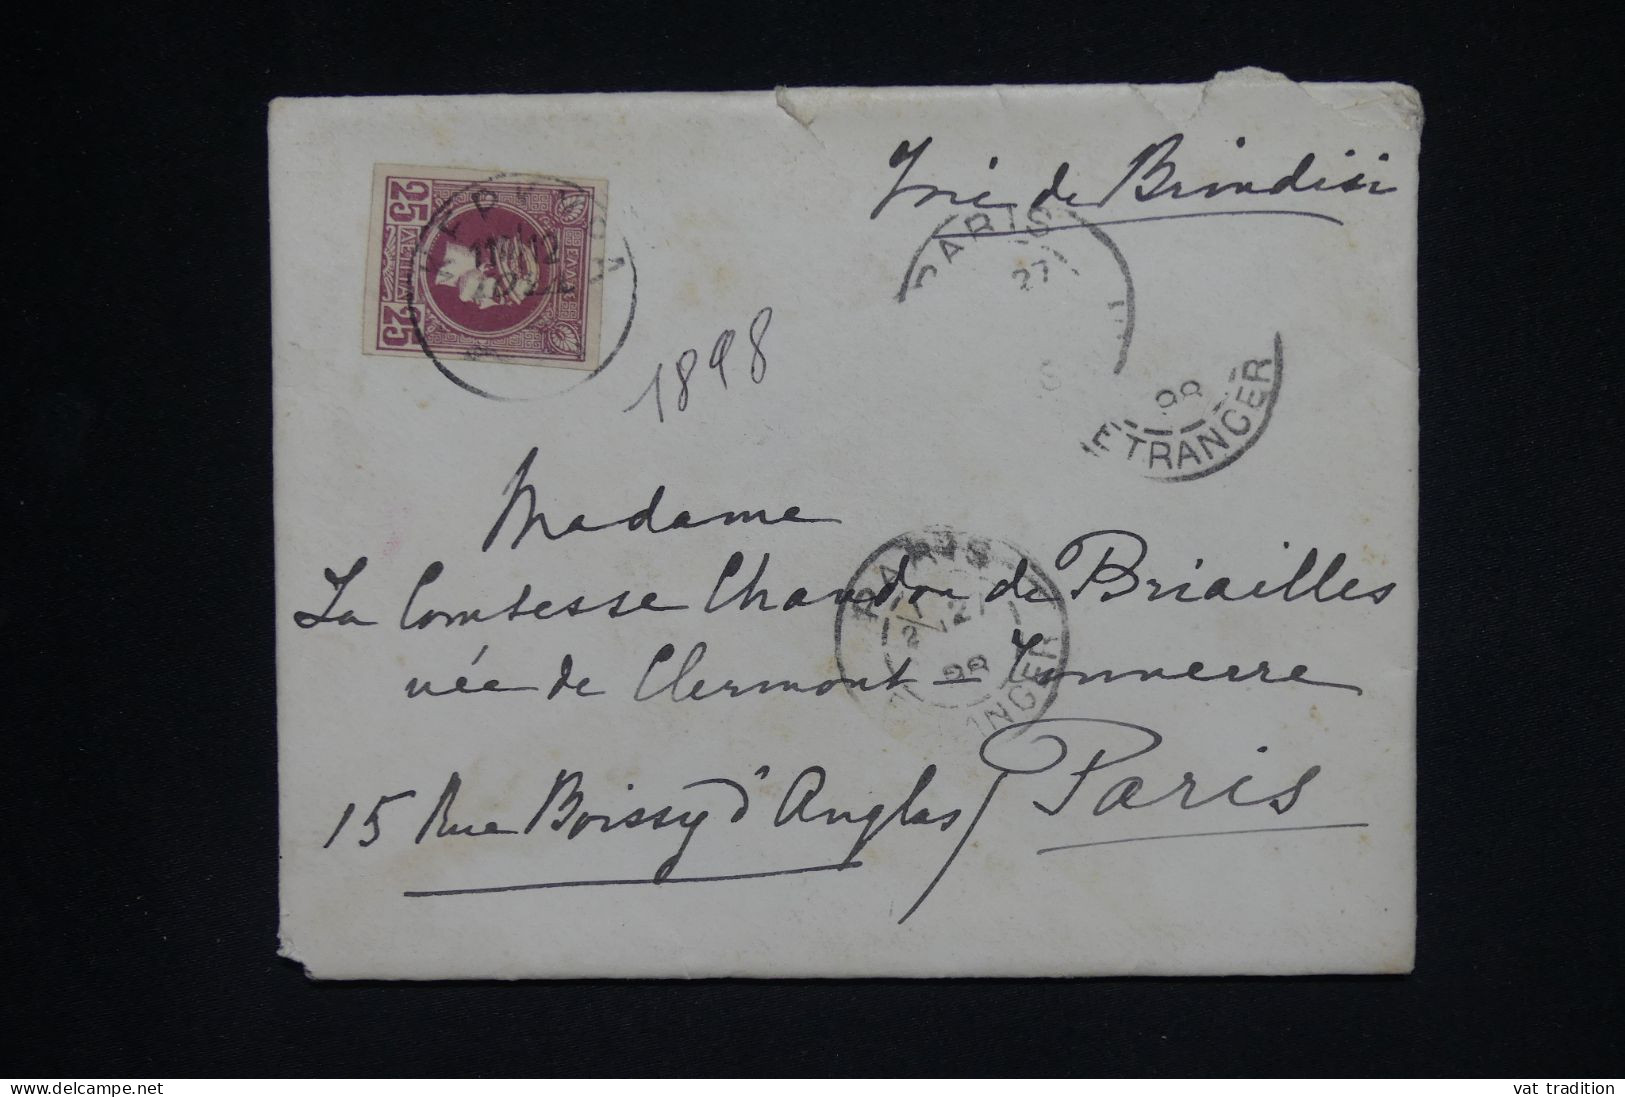 Voie de Brindisi
25
ΛΕΠΤΑ
25
ΕΛΛΑΣ
ΚΕΡΚΥΡΑ
PARIS
27
98
ETRANGER
1898
Madame
La Comtesse Chandon de Briailles
née de Clermont-Tonnerre
15 Rue Boissy d'Anglas / Paris
PARIS
98
vat tradition